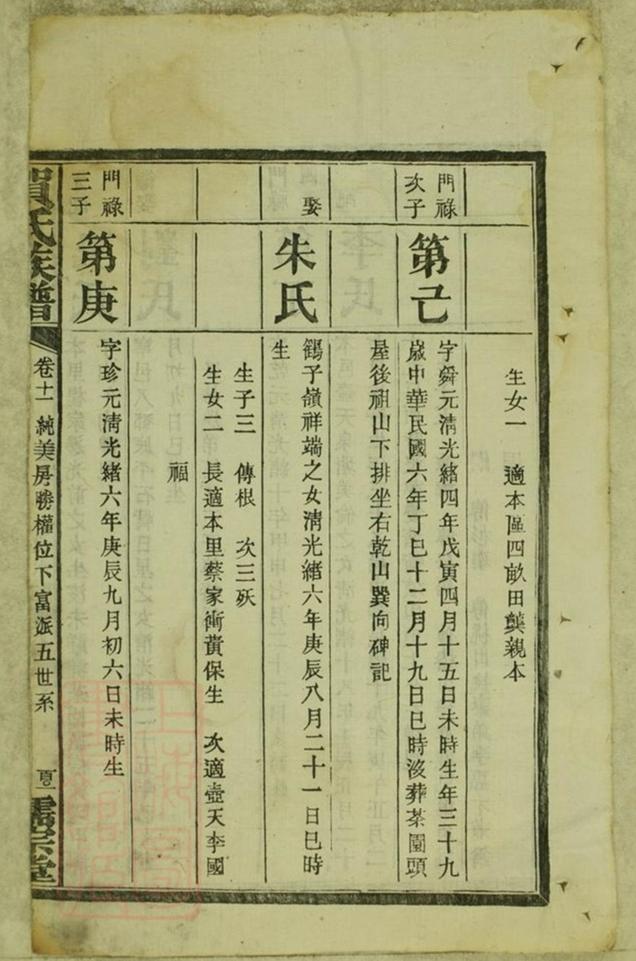 生女一 適本區四畝田龔親本
門祿
次子
第己
字舜元清光緒四年戊寅四月十五日未時生年三十九
歲中華民國六年丁巳十二月十九日巳時沒葬茶園頭
屋後祖山下排坐右乾山巽向碑記
娶
朱氏
鶴子嶺祥端之女清光緒六年庚辰八月二十一日巳時
生
生子三 傳根 次三殀
生女二 長適本里蔡家衖黃保生 次適壺天李國
福
門祿
三子
第庚
字珍元清光緒六年庚辰九月初六日未時生
賀氏族譜
卷十一 純美房勝權位下富派五世系
儒宗堂